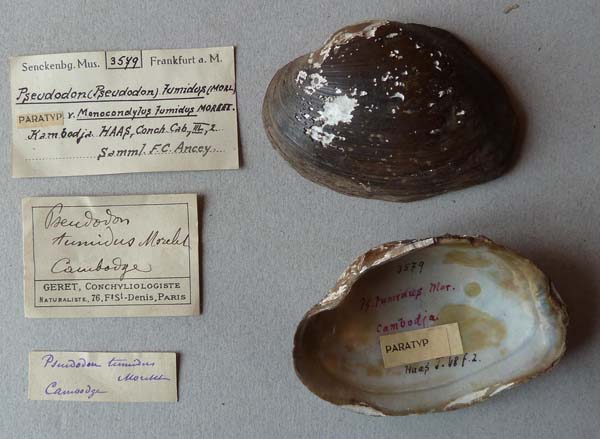 Senckenbg. Mus. 3579 Frankfurt a. M.
Pseudodon (Pseudodon) tumidus (MORL.)
PARATYP v. Monocondylus tumidus MORLET.
Kambodja. HAAS, Conch. Cab., III, 2
Samml. F.C. Ancey.
Pseudodon
tumidus Morelet
Cambodge
GERET, CONCHYLIOLOGISTE
NATURALISTE, 76, Fg St-Denis, PARIS
Pseudodon tumidus
Morelet
Cambodge
3579
Ps. tumidus Mor.
Cambodja.
PARATYP
Haas T. 48 f. 2.